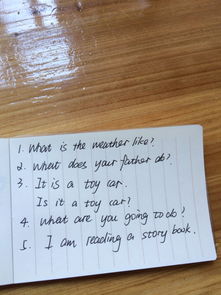 1. What is the weather like?
2. What does your father do?
3. It is a toy car.
Is it a toy car?
4. What are you going to do?
5. I am reading a story book.